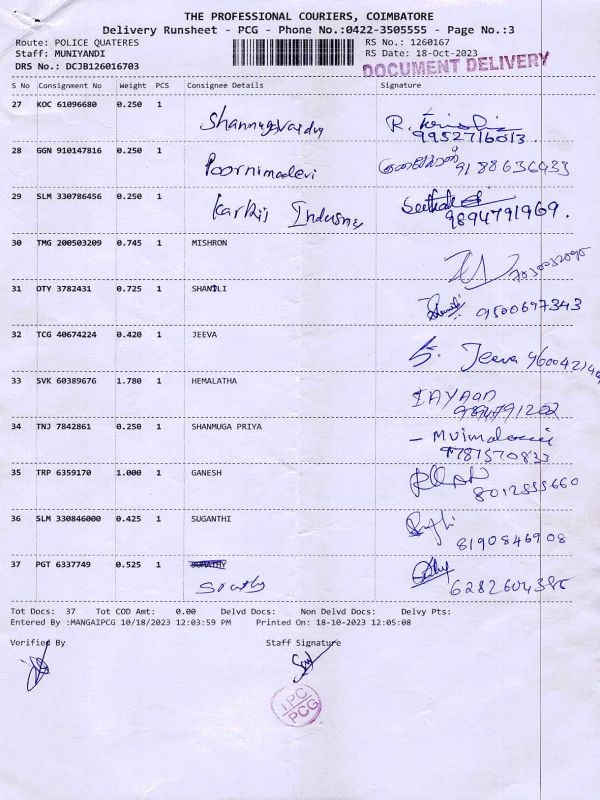 THE PROFESSIONAL COURIERS, COIMBATORE
Delivery Runsheet - PCG - Phone No.:0422-3505555 - Page No.:3
Route: POLICE QUATERES RS No.: 1260167
Staff: MUNIYANDI RS Date: 18-Oct-2023
DRS No.: DCJB126016703 DOCUMENT DELIVERY
S No Consignment No Weight PCS Consignee Details Signature
27 KOC 61096680 0.250 1
9952716013.
28 GGN 910147816 0.250 1
Poornimadevi
29 SLM 330786456 0.250 1
9894791969.
30 TMG 200503209 0.745 1 MISHRON
31 OTY 3782431 0.725 1 SHANTLI
9500697343
32 TCG 40674224 0.420 1 JEEVA
S. Jeeva
33 SVK 60389676 1.780 1 HEMALATHA
9894791202
34 TNJ 7842861 0.250 1 SHANMUGA PRIYA
9787570833
35 TRP 6359170 1.000 1 GANESH
8012555660
36 SLM 330846000 0.425 1 SUGANTHI
8190846908
37 PGT 6337749 0.525 1 SUMATHY
Tot Docs: 37 Tot COD Amt: 0.00 Delvd Docs: Non Delvd Docs: Delvy Pts:
Entered By :MANGAIPCG 10/18/2023 12:03:59 PM Printed On: 18-10-2023 12:05:08
Verified By Staff Signature
PCG